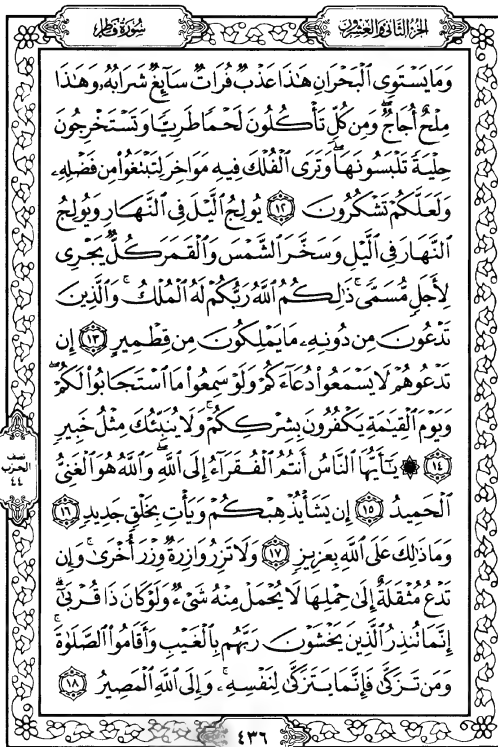 سُورَةُ فَاطِرٍ
الجُزْءُ الثَّانِي وَالعِشْرُونَ
وَمَا يَسْتَوِى ٱلْبَحْرَانِ هَٰذَا عَذْبٌ فُرَاتٌ سَآئِغٌ شَرَابُهُۥ وَهَٰذَا
مِلْحٌ أُجَاجٌ ۖ وَمِن كُلٍّ تَأْكُلُونَ لَحْمًا طَرِيًّا وَتَسْتَخْرِجُونَ
حِلْيَةً تَلْبَسُونَهَا ۖ وَتَرَى ٱلْفُلْكَ فِيهِ مَوَاخِرَ لِتَبْتَغُوا۟ مِن فَضْلِهِۦ
وَلَعَلَّكُمْ تَشْكُرُونَ ١٢ يُولِجُ ٱلَّيْلَ فِى ٱلنَّهَارِ وَيُولِجُ
ٱلنَّهَارَ فِى ٱلَّيْلِ وَسَخَّرَ ٱلشَّمْسَ وَٱلْقَمَرَ كُلٌّ يَجْرِى
لِأَجَلٍ مُّسَمًّى ۚ ذَٰلِكُمُ ٱللَّهُ رَبُّكُمْ لَهُ ٱلْمُلْكُ ۚ وَٱلَّذِينَ
تَدْعُونَ مِن دُونِهِۦ مَا يَمْلِكُونَ مِن قِطْمِيرٍ ١٣ إِن
تَدْعُوهُمْ لَا يَسْمَعُوا۟ دُعَآءَكُمْ وَلَوْ سَمِعُوا۟ مَا ٱسْتَجَابُوا۟ لَكُمْ ۖ
وَيَوْمَ ٱلْقِيَٰمَةِ يَكْفُرُونَ بِشِرْكِكُمْ ۚ وَلَا يُنَبِّئُكَ مِثْلُ خَبِيرٍ
١٤ ۞ يَٰٓأَيُّهَا ٱلنَّاسُ أَنتُمُ ٱلْفُقَرَآءُ إِلَى ٱللَّهِ ۖ وَٱللَّهُ هُوَ ٱلْغَنِىُّ
ٱلْحَمِيدُ ١٥ إِن يَشَأْ يُذْهِبْكُمْ وَيَأْتِ بِخَلْقٍ جَدِيدٍ ١٦
وَمَا ذَٰلِكَ عَلَى ٱللَّهِ بِعَزِيزٍ ١٧ وَلَا تَزِرُ وَازِرَةٌ وِزْرَ أُخْرَىٰ ۚ وَإِن
تَدْعُ مُثْقَلَةٌ إِلَىٰ حِمْلِهَا لَا يُحْمَلْ مِنْهُ شَىْءٌ وَلَوْ كَانَ ذَا قُرْبَىٰٓ ۗ
إِنَّمَا تُنذِرُ ٱلَّذِينَ يَخْشَوْنَ رَبَّهُم بِٱلْغَيْبِ وَأَقَامُوا۟ ٱلصَّلَوٰةَ ۚ
وَمَن تَزَكَّىٰ فَإِنَّمَا يَتَزَكَّىٰ لِنَفْسِهِۦ ۚ وَإِلَى ٱللَّهِ ٱلْمَصِيرُ ١٨
نصف
الحزب
٤٤
٤٣٦